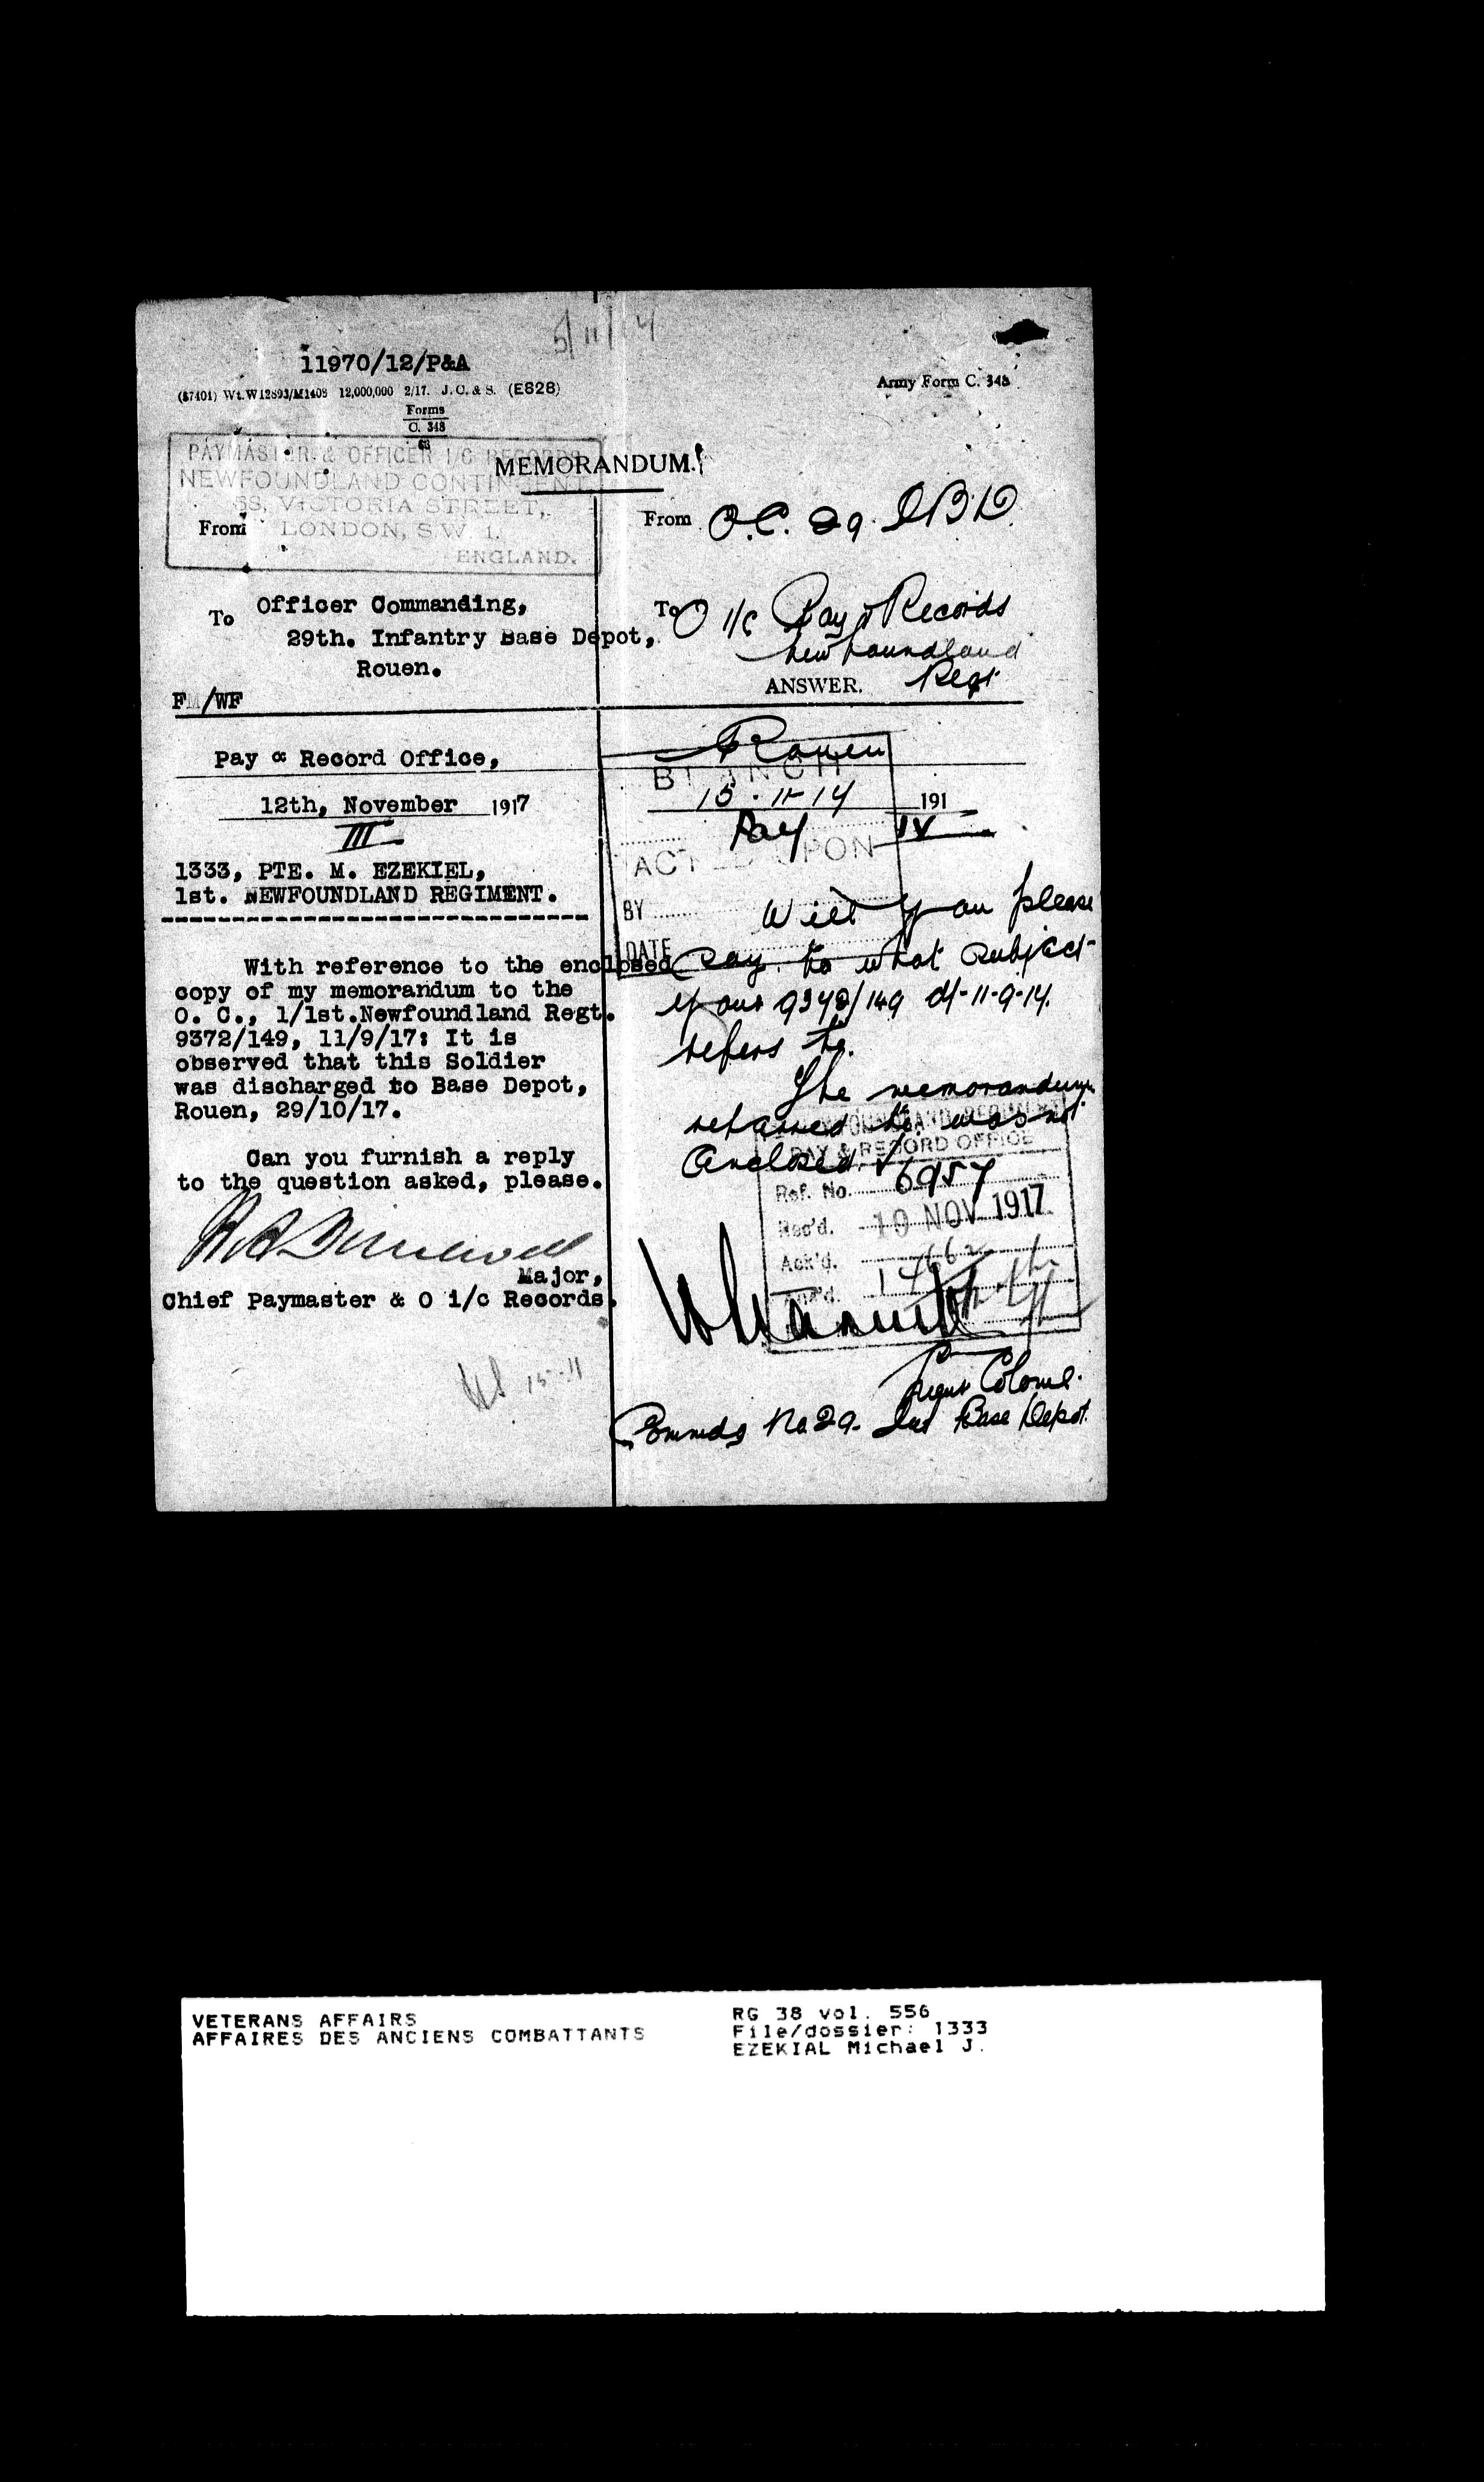 5/11/17
11970/12/P&A
(87401) Wt. W12893/M1408 12,000,000 2/17. J. C. & S. (E828)
Forms
C. 348
Army Form C. 348
PAYMASTER & OFFICER I/C RECORDS
NEWFOUNDLAND CONTINGENT
58, VICTORIA STREET,
LONDON, S.W. 1.
ENGLAND.
MEMORANDUM.
From
To Officer Commanding,
29th. Infantry Base Depot,
Rouen.
/WF
Pay & Record Office,
12th, November 1917
III
1333, PTE. M. EZEKIEL,
1st. NEWFOUNDLAND REGIMENT.
With reference to the enclosed
copy of my memorandum to the
O. C., 1/1st.Newfoundland Regt.
9372/149, 11/9/17: It is
observed that this Soldier
was discharged to Base Depot,
Rouen, 29/10/17.
Can you furnish a reply
to the question asked, please.
Major,
Chief Paymaster & O i/c Records.
15-11
From O.C. 29. I.B.D.
To O I/C Pay & Records
Newfoundland
Regt
ANSWER.
Rouen
15-11-17 191
BRANCH
Pay IV
ACTED UPON
BY
DATE
Will you please
say to what subject
your 9372/149 d/-11-9-17.
refers to.
The memorandum
referred to was not
enclosed.
PAY & RECORD OFFICE
Ref. No. 6957
Rec'd. 19 NOV 1917
Ack'd.
Ans'd.
Lieut Colonel.
Commdg No. 29. Inf Base Depot.
VETERANS AFFAIRS
AFFAIRES DES ANCIENS COMBATTANTS
RG 38 vol. 556
File/dossier: 1333
EZEKIAL Michael J.